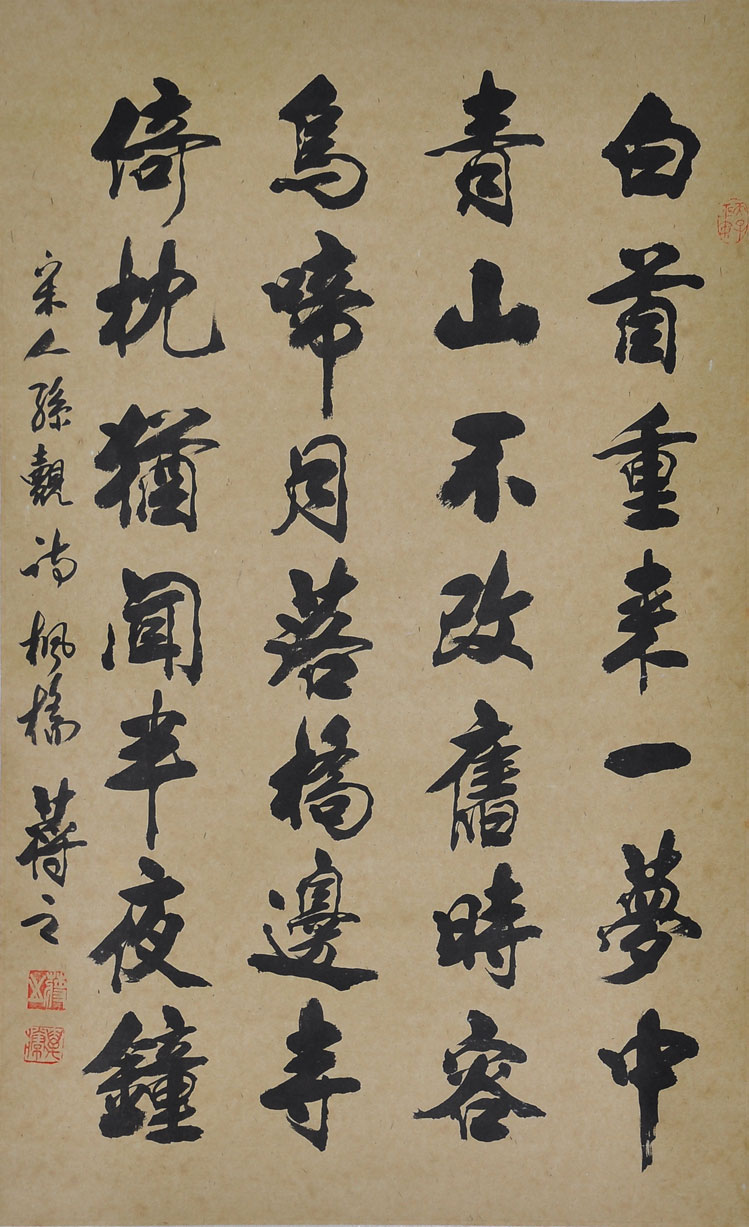 白首重来一夢中
青山不改舊時容
烏啼月落橋邊寺
倚枕猶聞半夜鐘
宋人孫覿詩楓橋